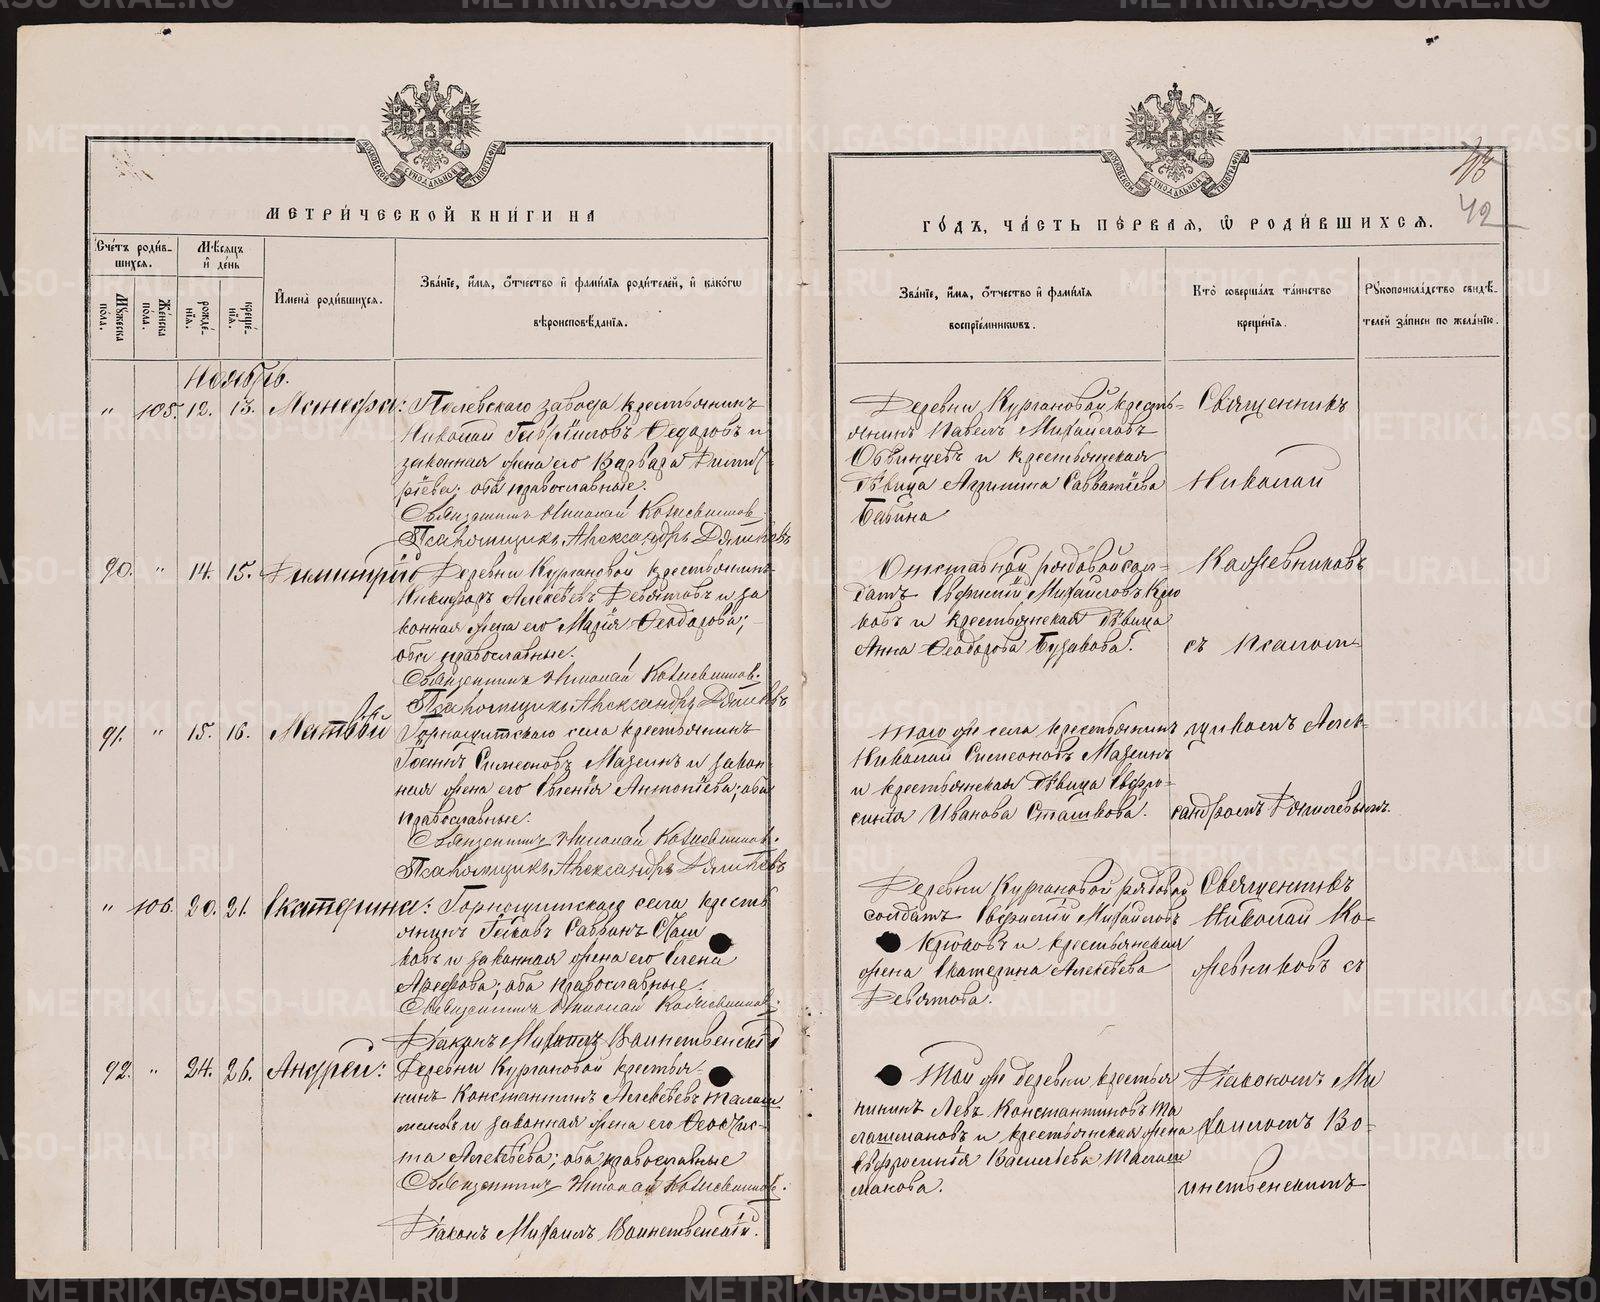 МЕТРИ́ЧЕСКОЙ КНИ́ГИ НА
Сче́тъ роди́в-
шихся.
Мѣ́сяцъ
и҆ де́нь
Му́жеска
пола.
Же́нска
пола.
рожде́-
нїя.
креще́-
нїя.
И҆мена̀ роди́вшихся.
Зва́нїе, и҆́мя, ѻ҆́тчество и҆ фами́лїя роди́телей, и҆ како́гѡ
вѣроисповѣ́данїя.
Ноябрь.
" 105. 12. 13. Манефа: Полевскаго завода крестьянинъ
Николай Гаврииловъ Ѳедоровъ и
законная жена его Варвара Димит-
рїева; оба православные.
Священникъ Николай Кожевниковъ.
Псаломщикъ Александръ
90. " 14. 15. Димитрїй Деревни Кургановой крестьянинъ
Никифоръ Алексѣевъ Девятовъ и за
конная жена его Марїя Ѳеодорова;
оба православные.
Священникъ Николай Кожевниковъ.
Псаломщикъ Александръ
91. " 15. 16. Матвѣй Горнощитскаго села крестьянинъ
Симеоновъ Мазеинъ и закон-
ная жена его Евгенїя Антонїева; оба
православные.
Священникъ Николай Кожевниковъ.
Псаломщикъ Александръ
" 106. 20. 21. Екатерина: Горнощитскаго села кресть
янинъ Савинъ Сташ
ковъ и законная жена его Елена
Арефова; оба православные.
Священникъ Николай Кожевниковъ.
Дїаконъ Михаилъ Воинственскїй
92. " 24. 26. Андрей: Деревни Кургановой крестья-
нинъ Константинъ Алексѣевъ Талаш
мановъ и законная жена его Ѳеоктис-
та Алексѣева; оба православные
Священникъ Николай Кожевниковъ.
Дїаконъ Михаилъ Воинственскїй.
42
ГО́ДЪ, ЧА́СТЬ ПЕ́РВАЯ, Ѡ҆ РОДИ́ВШИХСЯ.
Зва́нїе, и҆́мя, ѻ҆́тчество и҆ фами́лїя
воспрїе́мниковъ.
Кто̀ соверша́лъ та́инство
креще́нїя.
Рукоприкла́дство свидѣ́-
телей за́писи по жела́нїю.
Деревни Кургановой кресть-
янинъ Павелъ Михайловъ
Обвинцевъ и крестьянская
дѣвица Агриппина Савватїева
Бабина
Священникъ
Николай
Отставной рядовой сол-
датъ Евфимїй Михайловъ Крю
ковъ и крестьянская дѣвица
Анна Ѳеодорова Бузакова.
Кожевниковъ
съ псалом-
Того же села крестьянинъ
Николай Симеоновъ Мазеинъ
и крестьянская дѣвица Евфро-
синїя Иванова Сташкова.
щикомъ Алек-
сандромъ
Деревни Кургановой рядовой
солдатъ Евфимїй Михайловъ
Крюковъ и крестьянская
жена Екатерина Алексѣева
Девятова.
Священникъ
Николай Ко-
жевниковъ съ
Той же деревни крестья
нинъ Левъ Константиновъ Та
лашмановъ и крестьянская жена
Евфросинїя Васильева Талаш
манова.
Дїакономъ Ми
хаиломъ Во-
инственскимъ
METRIKI.GASO-URAL.RU